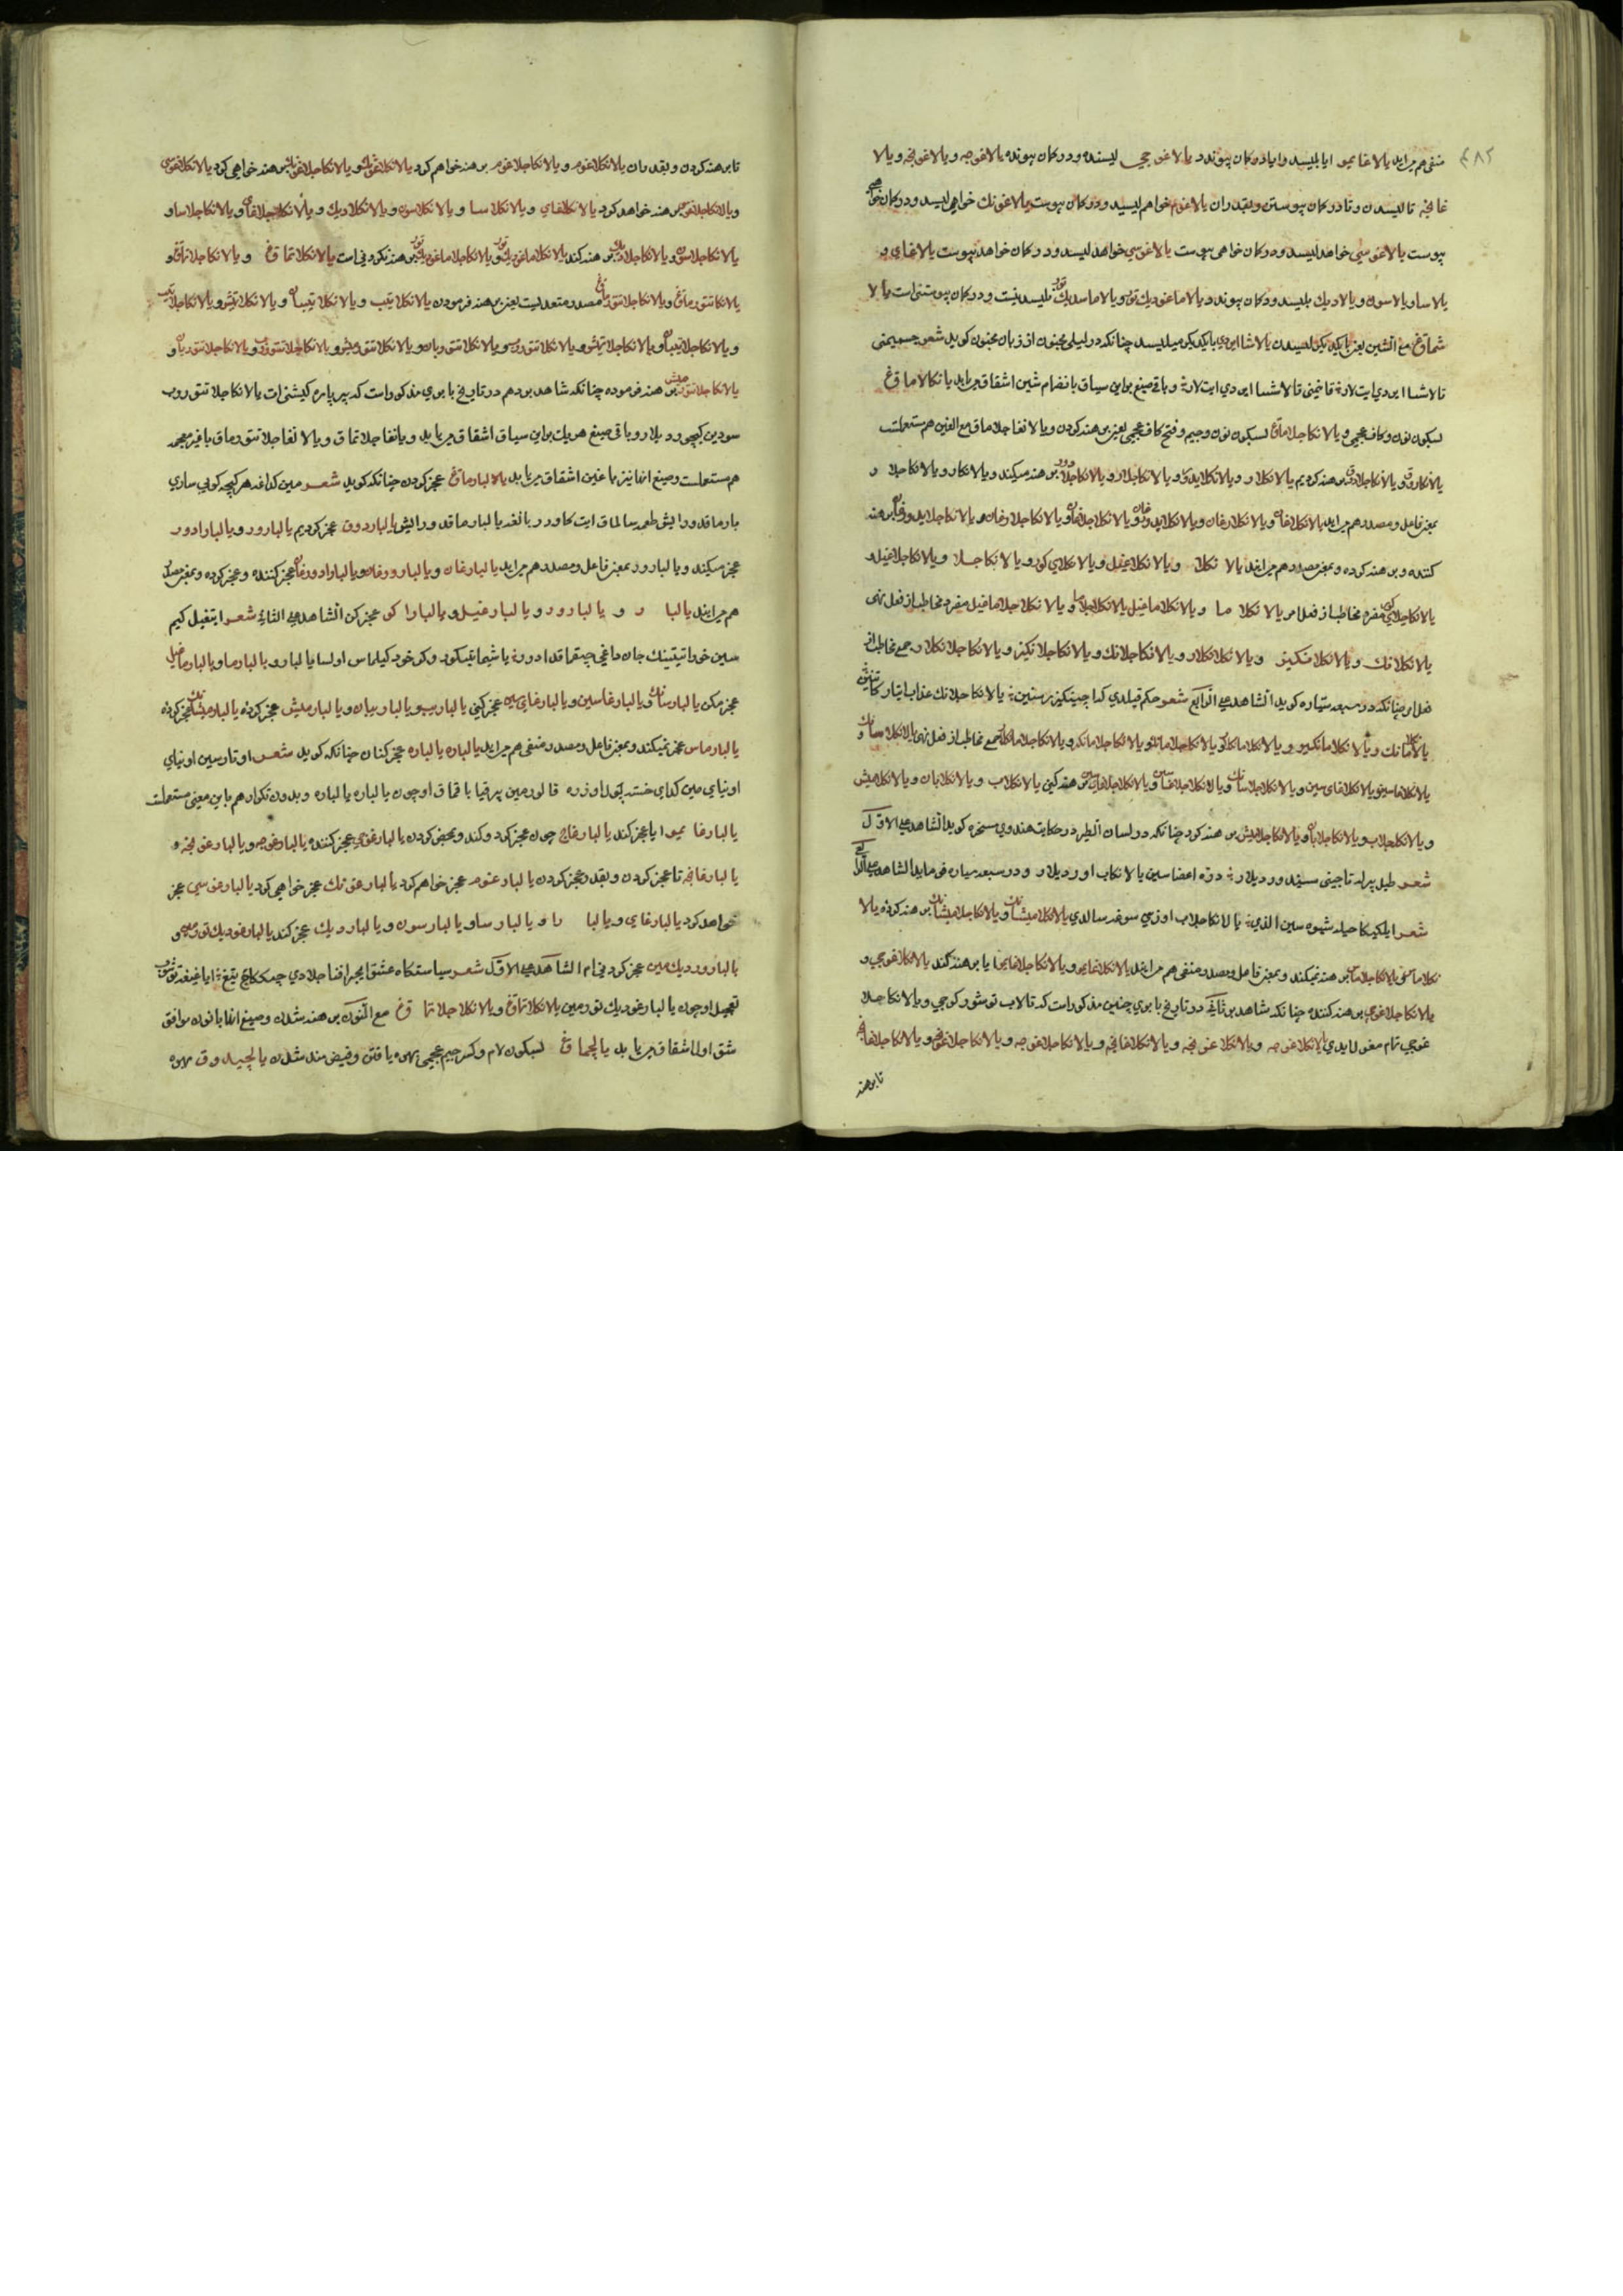 ۴۸۲
منفی هم می‌اید یالا غایمو ایا بلیسد وایا دوکان پیوندد یالا غوجی لیسنده و دوکان پیونده یالاغوجه ویالا غونچه ویالا
غانچه تا لیسدن و تا دوکان پیوستن و بقدران یالاغوم خواهم لیسید و دوکان پیوست یالاغونك خواهی لیسید و دوکان خواهی
پیوست یالاغوسی خواهد لیسید و دوکان خواهی پیوست یالاغوسی خواهد لیسید و دوکان خواهد پیوست یالاغای و
یالا سا ویالا سون ویالا دیك بلیسد ودوکان پیوندد ویالا ماغودیك تور ویالا ماسدیك تور نلیسدنیست ودوکان پیوستنی است یالا
شماق مع الشین یعنی بایکدیگر لیسیدن یالاشا ایردی بایکدیگر میلیسد چنانکه در لیلی مجنون از زبان مجنون کوید شعر جسمیمنی
تالاشا ایردی ایت لار قانیمنی یالاشا ایردی ایت لار و باقی صیغ براین سیاق بانضام شین اشقاق می‌یابد یانکالاماق
بسکون نون و کاف عجمی و یالانکاجلاماق بسکون نون و جیم و فتح کاف عجمی یعنی برهنه کردن ویالانغاجلاماق مع الغین هم مستعملست
یالانکلادوق ویالانکاجلادوق برهنه کردیم یالانکلار ویالانکلایدور ویالانکاجلار ویالانکاجلایدور برهنه میکند ویالانکلار ویالانکاجلار
بمعنی فاعل و مصدر هم می‌اید یالانکلاغان ویالانکلارغان ویالانکلایدورغان ویالانکاجلاغان ویالانکاجلارغان ویالانکاجلایدورغان برهنه
کننده و برهنه کرده و بمعنی مصدر هم می‌ایند یالانکلا ویالانکلاغیل ویالانکلای کور ویالانکاجلا ویالانکاجلاغیل و
یالانکاجلای کور مفرد مخاطب از فعل امر یالانکلاما ویالانکلاماغیل یالانکاجلاما ویالانکاجلاماغیل مفرد مخاطب از فعل نهی
یالانکلانك ویالانکلانکیز ویالانکلانکلار ویالانکاجلانك ویالانکاجلانکیز ویالانکاجلانکلار جمع مخاطب از
فعل امر چنانکه در سبعه سیاره کوید الشاهد علی الرابع شعر حکم قیلدی کدا چیپنکیز یالانکاجلانك عذاب ایتارکا تنین
یالانکلامانك ویالانکلامانکیز ویالانکلامانکلار ویالانکاجلامانك ویالانکاجلامانکیز ویالانکاجلامانکلار جمع مخاطب از فعل نهی یالانکلاسانك و
یالانکلاسین ویالانکلاغای سین ویالانکاجلاسانك ویالانکاجلاغاسین ویالانکاجلاغای سین برهنه کنی یالانکلاب ویالانکلابان ویالانکلامیش
ویالانکاجلاب ویالانکاجلابان ویالانکاجلامیش برهنه کرد چنانکه در لسان الطیر در حکایت هندوی مسخره کوید الشاهد علی الاول
شعر طبل بیرله تاجینی سیندوردیلار دره اعضا سین یالانکاب اوردیلار و در سبعه سیاره می‌فرماید الشاهد علی الثانی
شعر ایلکیکا حیله شیوه سین الدی یالانکاجلاب اوزنی سوغه سالدی یالانکلامیشانك ویالانکاجلامیشانك برهنه کردهٔ یالا
نکلاماس ویالانکاجلاماس برهنه نمیکند و بمعنی فاعل و مصدر منفی هم می‌ایند یالانکلاغایمو ویالانکاجلاغایمو ایا برهنه کند یالانکلاغوجی و
یالانکاجلاغوجی برهنه کننده چنانکه شاهد بر ثانی در تاریخ بابری چنین مذکورات که تالاب توشورکوجی ویالانکاجلا
غوجی تام مغول ایدی یالانکلاغوجه ویالانکلاغونچه ویالانکلاغانچه ویالانکاجلاغوجه ویالانکاجلاغونچه ویالانکاجلاغانچه
تابرهنه
تا برهنه کردن و بقدران یالانکلاغوم ویالانکاجلاغوم برهنه خواهم کرد یالانکلاغونك ویالانکاجلاغونك برهنه خواهی کرد یالانکلاغوسی
ویالانکاجلاغوسی برهنه خواهد کرد یالانکلاغای ویالانکلاسا ویالانکلاسون ویالانکلادیك ویالانکاجلاغای ویالانکاجلاسا و
یالانکاجلاسون ویالانکاجلادیك برهنه کند یالانکلاماغودیك تور ویالانکاجلاماغودیك تور برهنه نکردنی است یالانکلاتماق ویالانکاجلاتماق و
یالانکلاتتورماق ویالانکاجلاتتورماق مصدر متعدیست یعنی برهنه فرمودن یالانکلاتیب ویالانکلاتیبان ویالانکلاتمیش ویالانکاجلاتیب
ویالانکاجلاتیبان ویالانکاجلاتمیش ویالانکلاتتوروب ویالانکلاتتوروبان ویالانکلاتتورمیش ویالانکاجلاتتوروب ویالانکاجلاتتوروبان و
یالانکاجلاتتورمیش برهنه فرموده چنانکه شاهد بر دهم در تاریخ بابری مذکور است که بیر پاره کیشنی ات یالانکاجلاتتوروب
سودین کیچوردیلار و باقی صیغ هریك براین سیاق اشقاق می‌یابد ویانغاجلاتماق ویالانغاجلاتتورماق با غین معجمه
هم مستعملست و صیغ انها نیز با غین اشقاق می‌یابد یالبارماق عجز کردن چنانکه کوید شعر مین کدا غه هر کیچه کویی ساری
بارماقدور ایش طعمه سالماق ایت کا و در بانغه یالبارماقدور ایش یالباردوق عجز کردیم یالبارور ویالبارادور
عجز میکند ویالبارور بمعنی فاعل و مصدر هم می‌اید یالبارغان ویالبارورغان ویالبارادورغان عجز کننده و عجز کرده و بمعنی مصدر
هم می‌ایند یالبار و یالبارور و یالبارغیل و یالبارا کور عجز کن الشاهد علی الثانی شعر ایتغیل کیم
سین خود ایتیبنك جان داغی چیقماقدادور یا شیما تیسکور و کر خود کیلماس اولسا یالبارو یالبارما ویالبارماغیل
عجز مکن یالبارسانك ویالبارغاسین ویالبارغای سین عجز کنی یالباریب ویالباریبان ویالبارمیش عجز کرده یالبارمیشانك عجز کردهٔ
یالبارماس عجز نمیکند و بمعنی فاعل و مصدر منفی هم می‌اید یالباره یالباره عجز کنان چنانکه کوید شعر اوتارسین اوینای
اوینای مین کدای خسته یوزره قالورمین بیرقیا باقماق اوچون یالباره یالباره و بدون تکرار هم باین معنی مستعملست
یالبارغایمو ایا عجز کند یالبارغاج چون عجز کرد و کند و بمحض کردن یالبارغوجی عجز کننده یالبارغوجه ویالبارغونچه و
یالبارغانچه تا عجز کردن و بقدر عجز کردن یالبارغوم عجز خواهم کرد یالبارغونك عجز خواهی کرد یالبارغوسی عجز
خواهد کرد یالبارغای ویالبارا ویالبارسا ویالبارسون ویالباردیك عجز کند یالبارغودیك تورمین و
یالبارودیك مین عجز کردنی ام الشاهد علی الاول شعر سیاستکاه عشق ایجرا فنا جلادی چیککاچ تیغ ایا غیغه توشوب
تعجیل اوچون یالبارغودیك تورمین یالانکلاتماق ویالانکاجلاتماق مع النون برهنه شدن و صیغ انها با نون موافق
شق اول اشقاق می‌یابد یالچیماق بسکون لام و کسر جیم عجمی بهره یافتن و فیض مند شدن یالچیدوق بهره